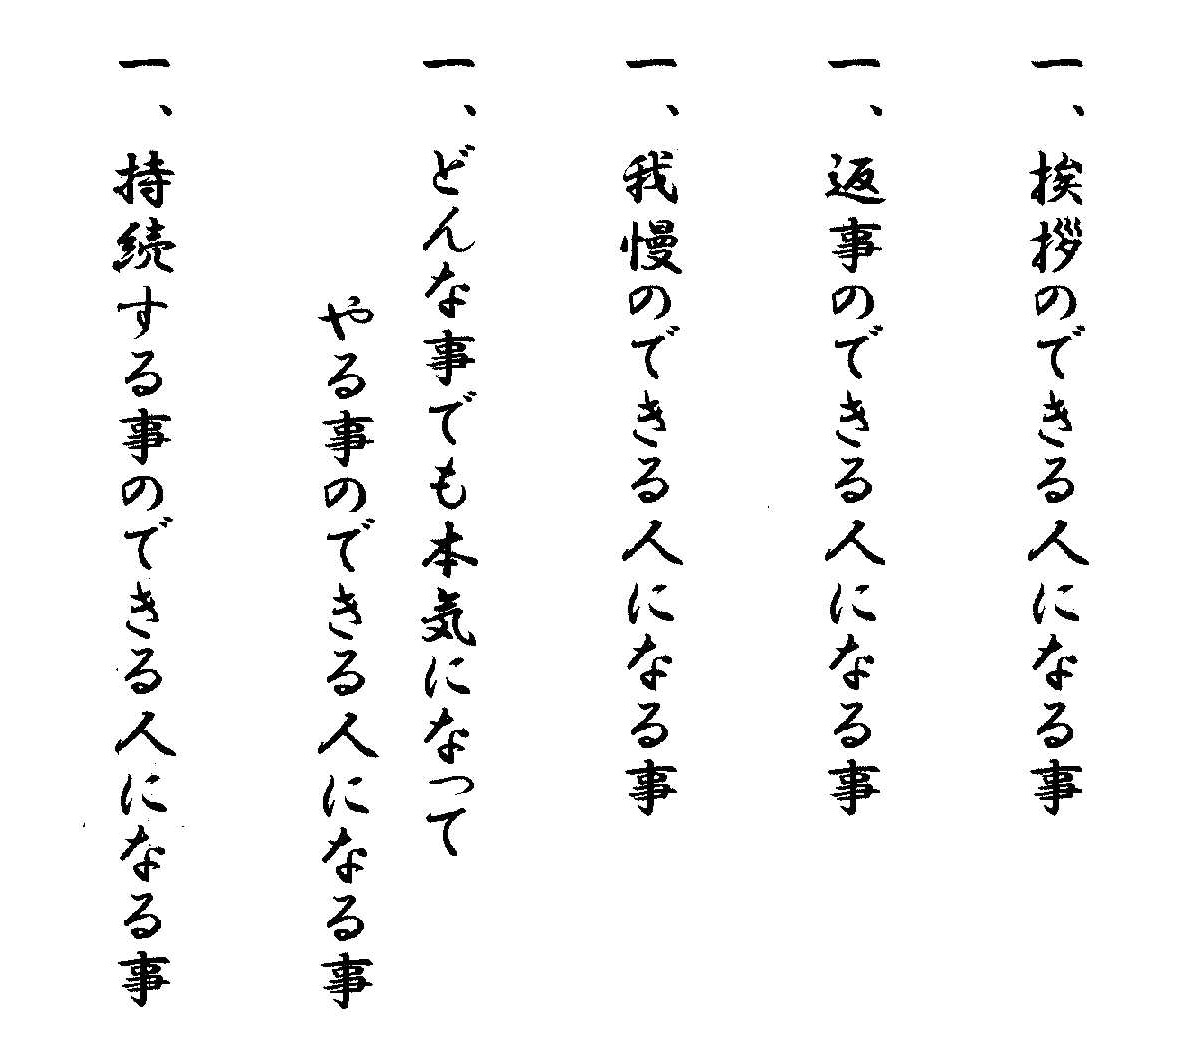 一、挨拶のできる人になる事
一、返事のできる人になる事
一、我慢のできる人になる事
一、どんな事でも本気になって
やる事のできる人になる事
一、持続する事のできる人になる事